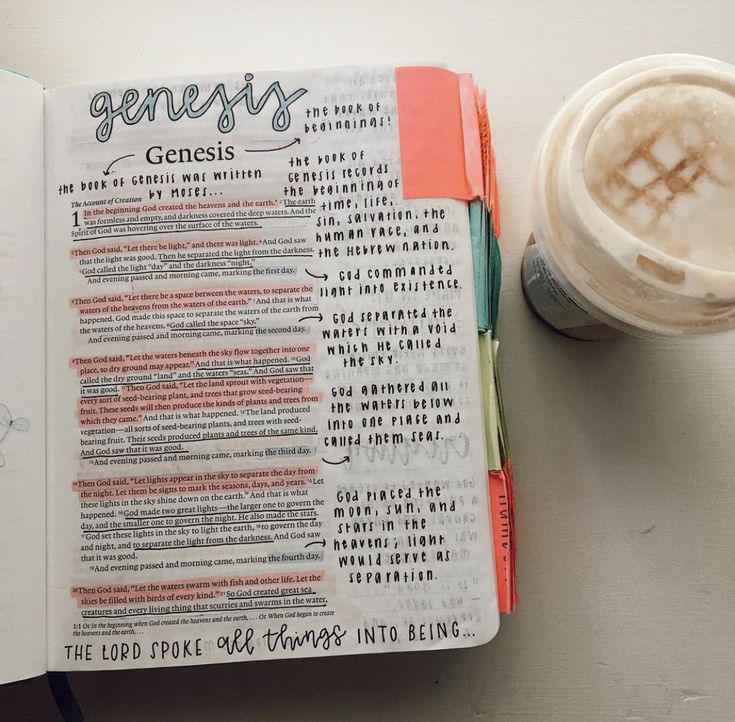 genesis
the book of
beginnings!
Genesis
the book of Genesis was written
by Moses...
the book of
Genesis records
the beginning of
time, life,
sin, salvation, the
human race, and
the Hebrew nation.
The Account of Creation
1 In the beginning God created the heavens and the earth.* ²The earth
was formless and empty, and darkness covered the deep waters. And the
Spirit of God was hovering over the surface of the waters.
³Then God said, "Let there be light," and there was light. ⁴And God saw
that the light was good. Then he separated the light from the darkness.
⁵God called the light "day" and the darkness "night."
And evening passed and morning came, marking the first day.
God commanded
light into existence.
⁶Then God said, "Let there be a space between the waters, to separate the
waters of the heavens from the waters of the earth." ⁷And that is what
happened. God made this space to separate the waters of the earth from
the waters of the heavens. ⁸God called the space "sky."
And evening passed and morning came, marking the second day.
God separated the
waters with a void
which He called
the sky.
⁹Then God said, "Let the waters beneath the sky flow together into one
place, so dry ground may appear." And that is what happened. ¹⁰God
called the dry ground "land" and the waters "seas." And God saw that
it was good. ¹¹Then God said, "Let the land sprout with vegetation—
every sort of seed-bearing plant, and trees that grow seed-bearing
fruit. These seeds will then produce the kinds of plants and trees from
which they came." And that is what happened. ¹²The land produced
vegetation—all sorts of seed-bearing plants, and trees with seed-
bearing fruit. Their seeds produced plants and trees of the same kind.
And God saw that it was good.
¹³And evening passed and morning came, marking the third day.
God gathered all
the waters below
into one place and
called them seas.
¹⁴Then God said, "Let lights appear in the sky to separate the day from
the night. Let them be signs to mark the seasons, days, and years. ¹⁵Let
these lights in the sky shine down on the earth." And that is what
happened. ¹⁶God made two great lights—the larger one to govern the
day, and the smaller one to govern the night. He also made the stars.
¹⁷God set these lights in the sky to light the earth, ¹⁸to govern the day
and night, and to separate the light from the darkness. And God saw
that it was good.
¹⁹And evening passed and morning came, marking the fourth day.
God placed the
moon, sun, and
stars in the
heavens; light
would serve as
separation.
²⁰Then God said, "Let the waters swarm with fish and other life. Let the
skies be filled with birds of every kind." ²¹So God created great sea
creatures and every living thing that scurries and swarms in the water,
1:1 Or In the beginning when God created the heavens and the earth, . . . Or When God began to create
the heavens and the earth, . . .
THE LORD SPOKE all things INTO BEING...